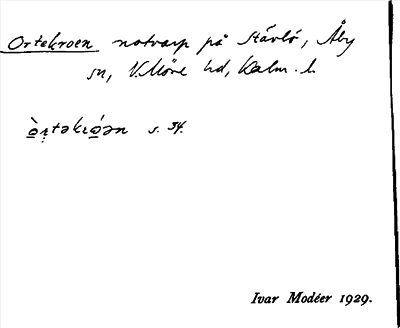 Ortekroen notvarp på Stävlö, Åby
sn, V. Möre hd, Kalm. l.
s. 34.
Ivar Modéer 1929.